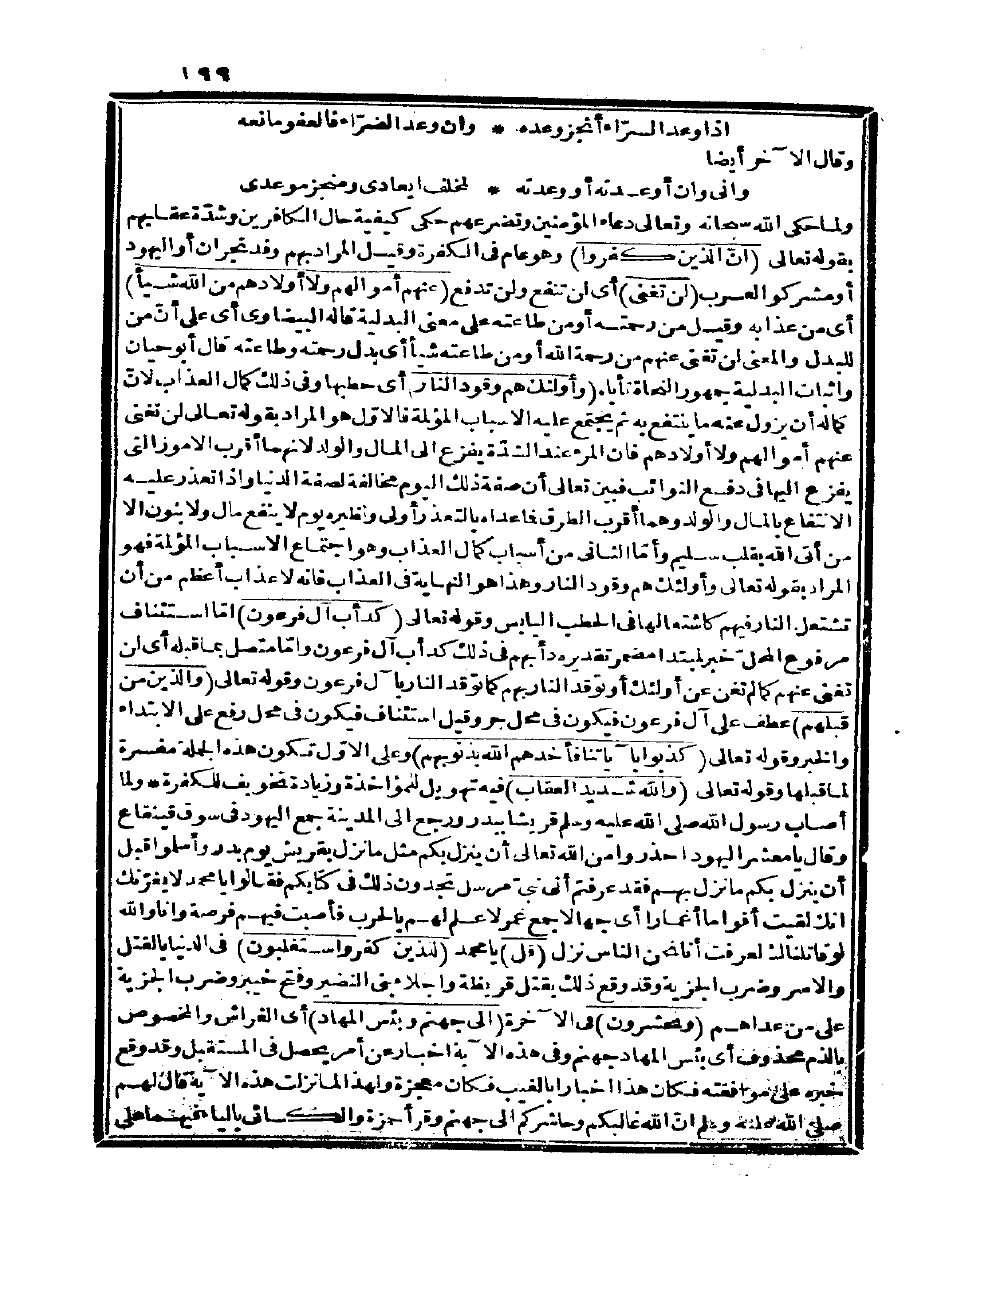 ١٩٩
اذا وعد السرّاء أنجز وعده * وان وعد الضرّاء فالعفو مانعه
وقال الآخر أيضا
وانى وان أوعدته أو وعدته * لمخلف ايعادى ومنجز موعدى
ولما حكى الله سبحانه وتعالى دعاء المؤمنين وتضرعهم حكى كيفية حال الكافرين وشدّة عقابهم
بقوله تعالى (انّ الذين كفروا) وهو عام فى الكفرة وقيل المراد بهم وفد نجران أو اليهود
أو مشركو العرب (لن تغنى) أى لن تنفع ولن تدفع (عنهم أموالهم ولا أولادهم من الله شيأ)
أى من عذابه وقيل من رحمته أو من طاعته على معنى البدلية قاله البيضاوى أى على أنّ من
للبدل والمعنى لن تغنى عنهم من رحمة الله أو من طاعته شيأ أى بدل رحمته وطاعته قال أبو حيان
واثبات البدلية جمهور النحاة تأباه (وأولئك هم وقود النار) أى حطبها وفى ذلك كمال العذاب لانّ
كماله أن يزول عنه ما ينتفع به ثم يجتمع عليه الاسباب المؤلمة فالاول هو المراد بقوله تعالى لن تغنى
عنهم أموالهم ولا أولادهم فان المرء عند الشدّة يفزع الى المال والولد لانهما أقرب الامور التى
يفزع اليها فى دفع النوائب فبين تعالى أن صفة ذلك اليوم مخالفة لصفة الدنيا واذا تعذر عليه
الانتفاع بالمال والولد وهما أقرب الطرق فاعداه بالتعذر أولى ونظيره يوم لا ينفع مال ولا بنون الا
من أتى الله بقلب سليم وأمّا الثانى من أسباب كمال العذاب وهو اجتماع الاسباب المؤلمة فهو
المراد بقوله تعالى وأولئك هم وقود النار وهذا هو النهاية فى العذاب فانه لا عذاب أعظم من أن
تشتعل النار فيهم كاشتعالها فى الحطب اليابس وقوله تعالى (كدأب آل فرعون) امّا استئناف
مرفوع المحل خبر لمبتدا مضمر تقديره دأبهم فى ذلك كدأب آل فرعون وامّا متصل بما قبله أى لن
تغنى عنهم كما لم تغن عن أولئك أو توقد النار بهم كما توقد النار بآل فرعون وقوله تعالى (والذين من
قبلهم) عطف على آل فرعون فيكون فى محل جر وقيل استئناف فيكون فى محل رفع على الابتداء
والخبر وقوله تعالى (كذبوا بآياتنا فأخذهم الله بذنوبهم) وعلى الاوّل تكون هذه الجملة مفسرة
لما قبلها وقوله تعالى (والله شديد العقاب) فيه تهويل للمؤاخذة وزيادة تخويف للكفرة * ولما
أصاب رسول الله صلى الله عليه وسلم قريشا ببدر ورجع الى المدينة جمع اليهود فى سوق قينقاع
وقال يا معشر اليهود احذروا من الله تعالى أن ينزل بكم مثل ما نزل بقريش يوم بدر وأسلموا قبل
أن ينزل بكم ما نزل بهم فقد عرفتم أنى نبىّ مرسل تجدون ذلك فى كتابكم فقالوا يا محمد لا يغرّنك
انك لقيت أقواما أغمارا أى جهالا جمع غمر لا علم لهم بالحرب فأصبت فيهم فرصة وانا والله
لو قاتلناك لعرفت أنا نحن الناس نزل (قل) يا محمد (للذين كفروا ستغلبون) فى الدنيا بالقتل
والاسر وضرب الجزية وقد وقع ذلك بقتل قريظة واجلاء بنى النضير وفتح خيبر وضرب الجزية
على من عداهم (وتحشرون) فى الآخرة (الى جهنم وبئس المهاد) أى الفراش والمخصوص
بالذم محذوف أى بئس المهاد جهنم وفى هذه الآية اخبار عن أمر يحصل فى المستقبل وقد وقع
خبره على موافقته فكان هذا اخبارا بالغيب فكان معجزة ولهذا لما نزلت هذه الآية قال لهم
صلى الله عليه وسلم انّ الله غالبكم وحاشركم الى جهنم وقرأ حمزة والكسائى بالياء فيهما على